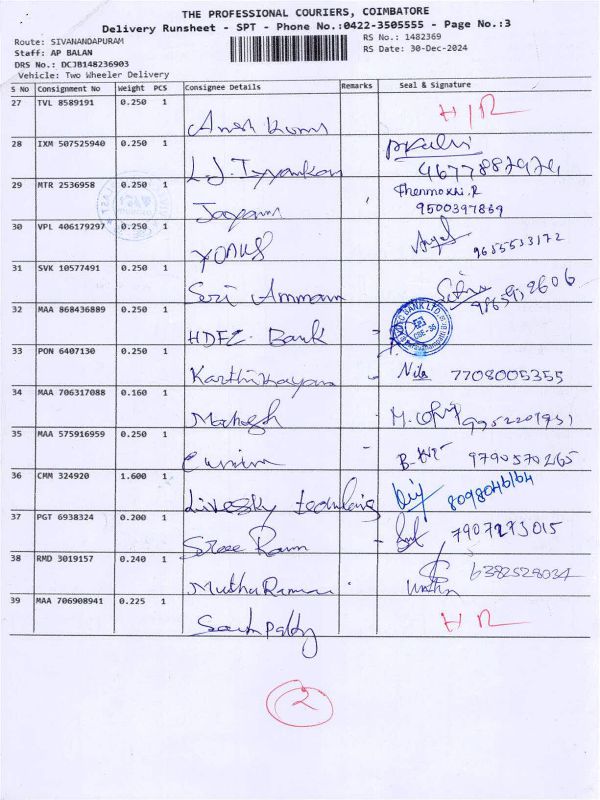 THE PROFESSIONAL COURIERS, COIMBATORE
Delivery Runsheet - SPT - Phone No.:0422-3505555 - Page No.:3
Route: SIVANANDAPURAM
RS No.: 1482369
Staff: AP BALAN
RS Date: 30-Dec-2024
DRS No.: DCJB148236903
Vehicle: Two Wheeler Delivery
S No Consignment No Weight PCS Consignee Details Remarks Seal & Signature
27 TVL 8589191 0.250 1
H/R
28 IXM 507525940 0.250 1
29 MTR 2536958 0.250 1
Jayaram
9500397869
30 VPL 406179297 0.250 1
9655533172
31 SVK 10577491 0.250 1
Sri Ammam
32 MAA 868436889 0.250 1
HDFC Bank
33 PON 6407130 0.250 1
Karthikayan
Nila 7708005355
34 MAA 706317088 0.160 1
Mahesh
35 MAA 575916959 0.250 1
9790570265
36 CMM 324920 1.600 1
8098046164
37 PGT 6938324 0.200 1
Ram
7907273015
38 RMD 3019157 0.240 1
6382528034
39 MAA 706908941 0.225 1
H R
2